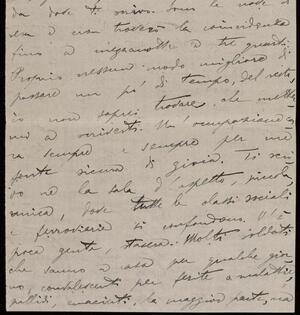 da dove ti scrivo. Sono le nove di
sera e non troverò la coincidenza
fino a mezzanotte e tre quarti.
Proprio nessun modo migliore di
passare un po' di tempo, del resto,
io non saprei trovare, che metter
mi a scriverti. Un'occupazione
ra sempre e sempre per me
fonte sicura di gioia. Ti scri
vo nella sala d'aspetto, piccola,
unica, dove tutte le classi sociali
e ferroviarie si confondono. C'è
poca gente, stasera. Molti soldati
che vanno a casa per qualche gior
no, convalescenti per ferite o malattie,
pallidi, emaciati, la maggior parte, ma